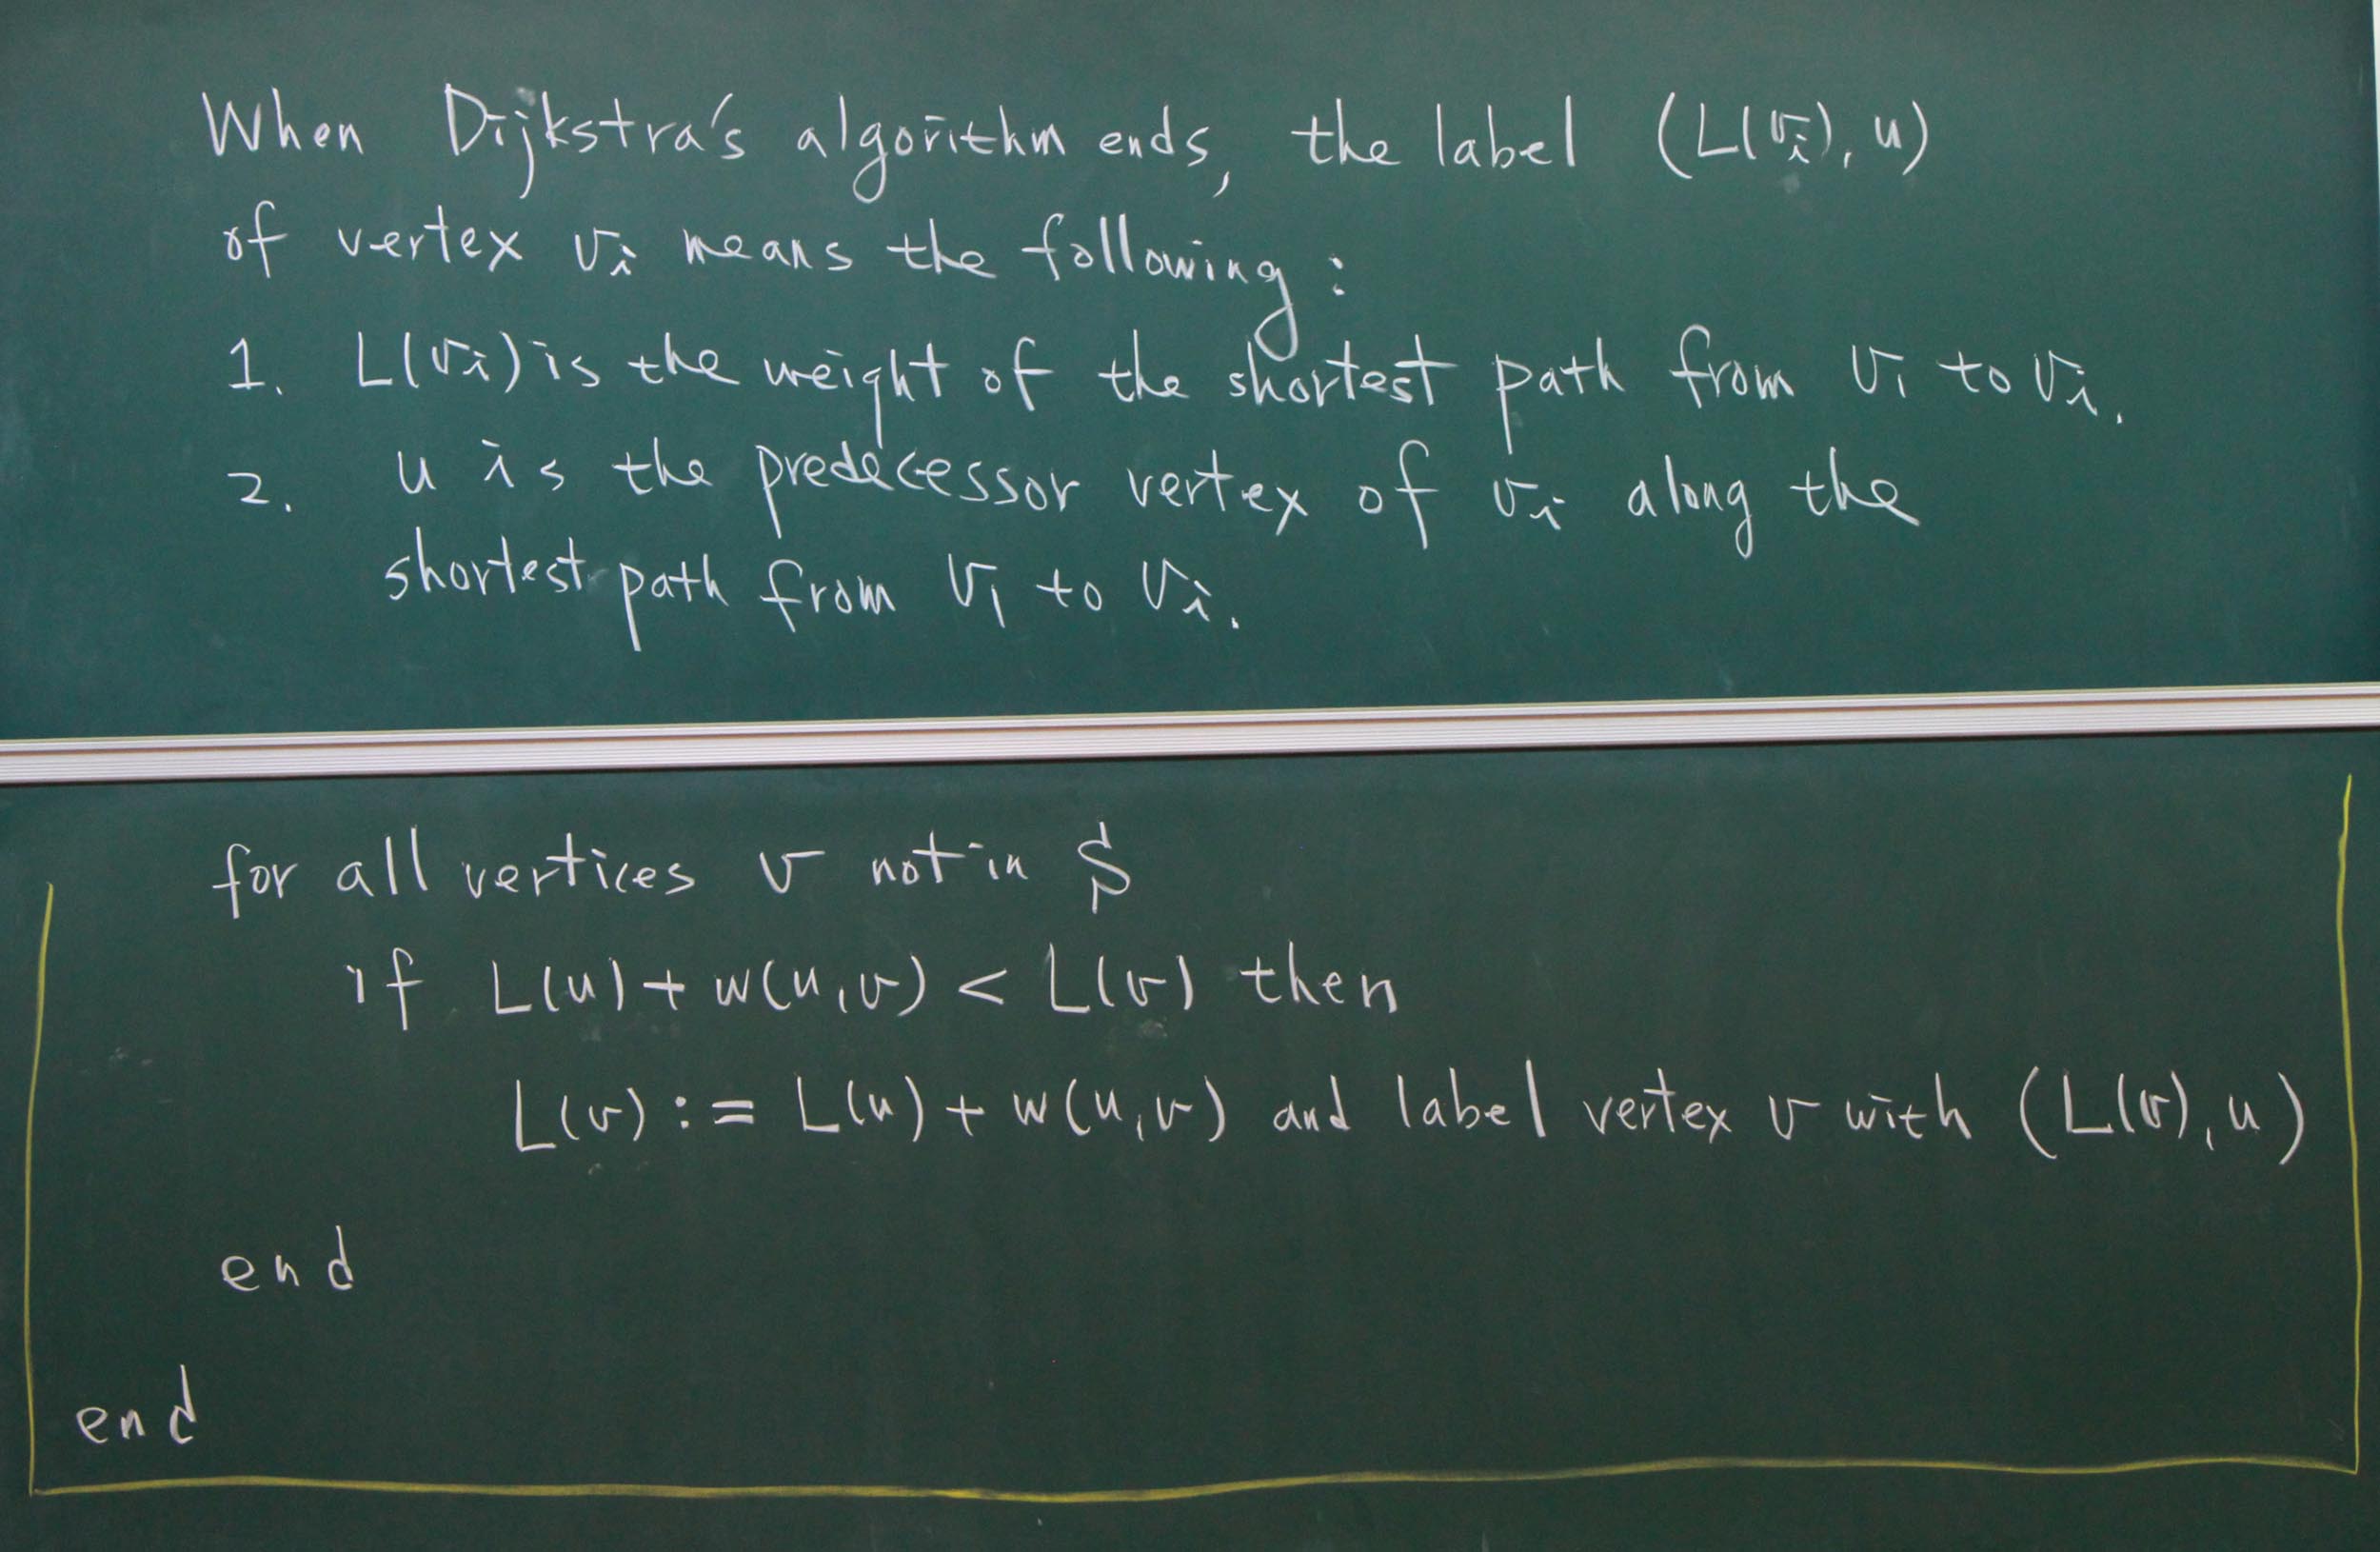 When Dijkstra's algorithm ends, the label (L(vᵢ), u)
of vertex vᵢ means the following:
1. L(vᵢ) is the weight of the shortest path from v₁ to vᵢ.
2. u is the predecessor vertex of vᵢ along the
shortest path from v₁ to vᵢ.
for all vertices v not in S
if L(u) + w(u,v) < L(v) then
L(v) := L(u) + w(u,v) and label vertex v with (L(v), u)
end
end